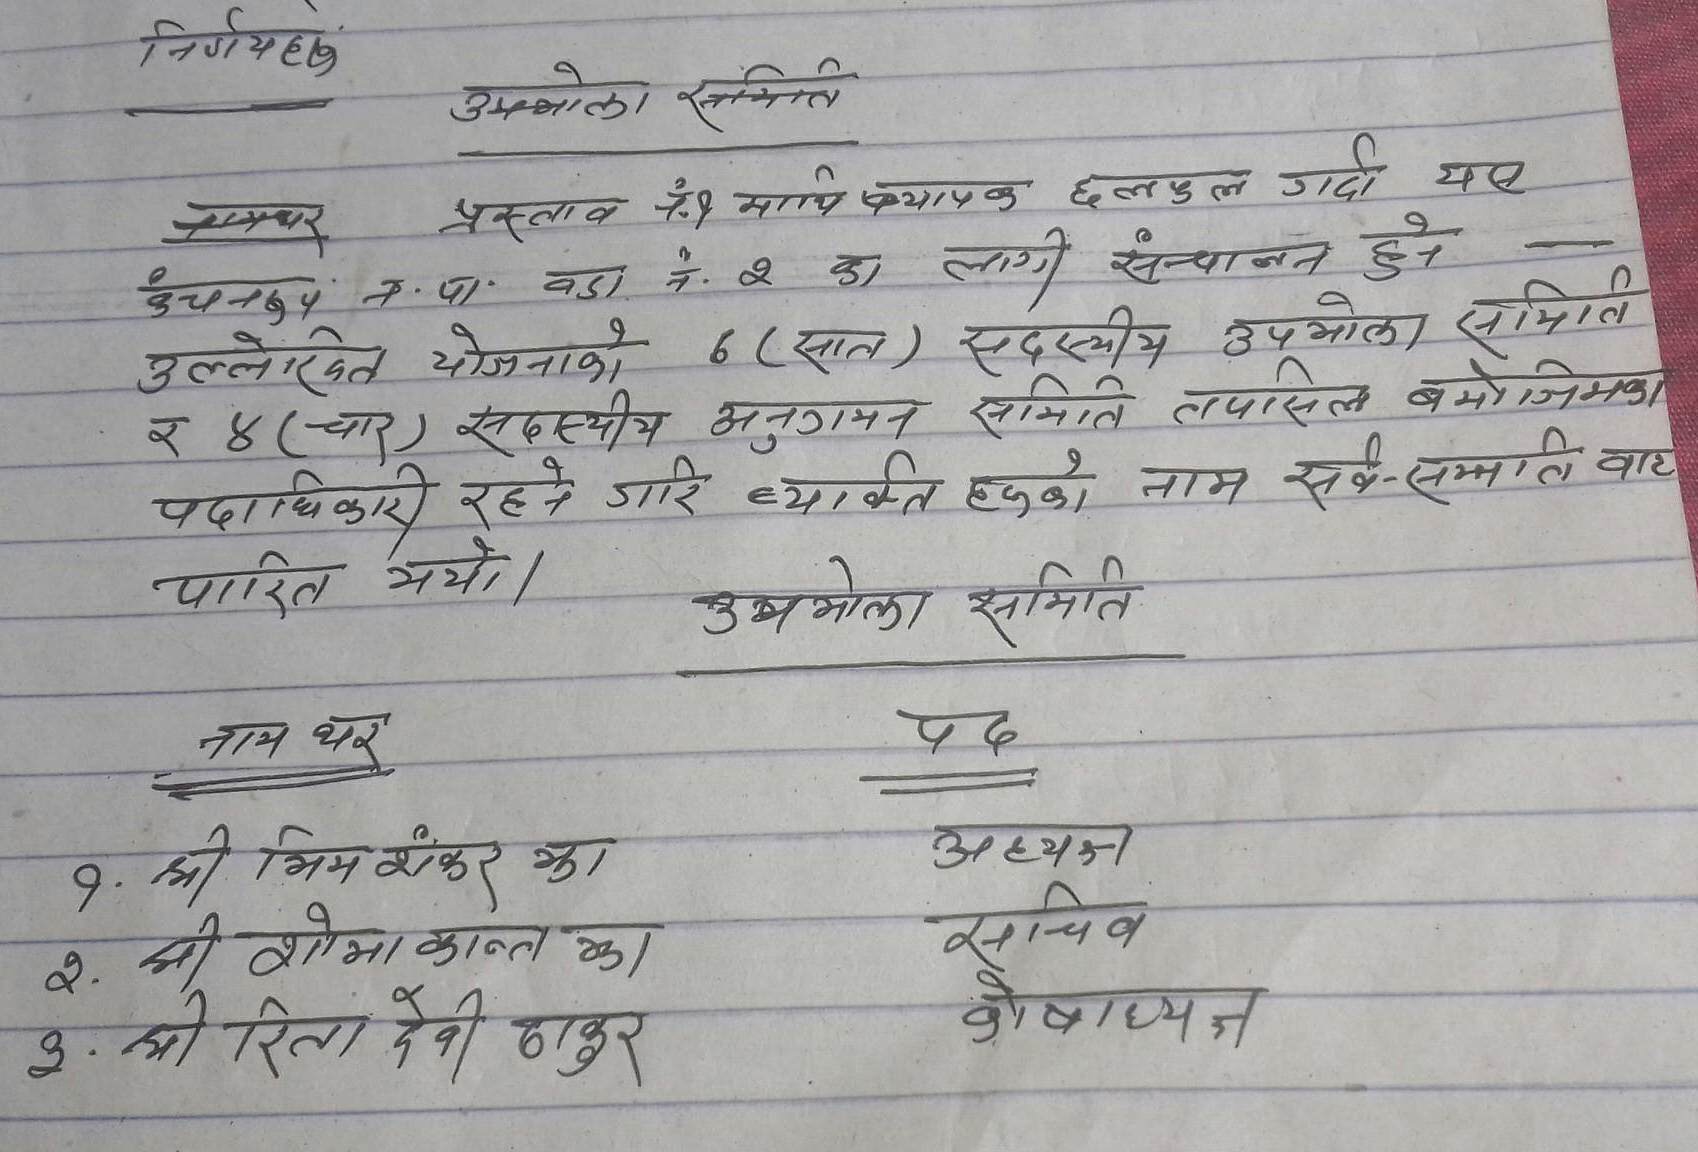 निर्णयहरू
उपभोक्ता समिति
प्रस्ताव नं.१ माथि व्यापक छलफल गर्दा यस
कंचनरूप न.पा. वडा नं. २ का लागी संन्चालन हुने —
उल्लेखित योजनाको ७ (सात) सदस्यीय उपभोक्ता समिति
र ४ (चार) सदस्यीय अनुगमन समिति तपसिल बमोजिमका
पदाधिकारी रहने गरि ब्याक्ति हरुको नाम सर्व-सम्मति बाट
पारित भयो।
उपभोक्ता समिति
नाम थर पद
१. श्री भिम शंकर झा अध्यक्ष
२. श्री शोभा कान्त झा सचिव
३. श्री रिता देवी ठाकुर कोषाध्यक्ष